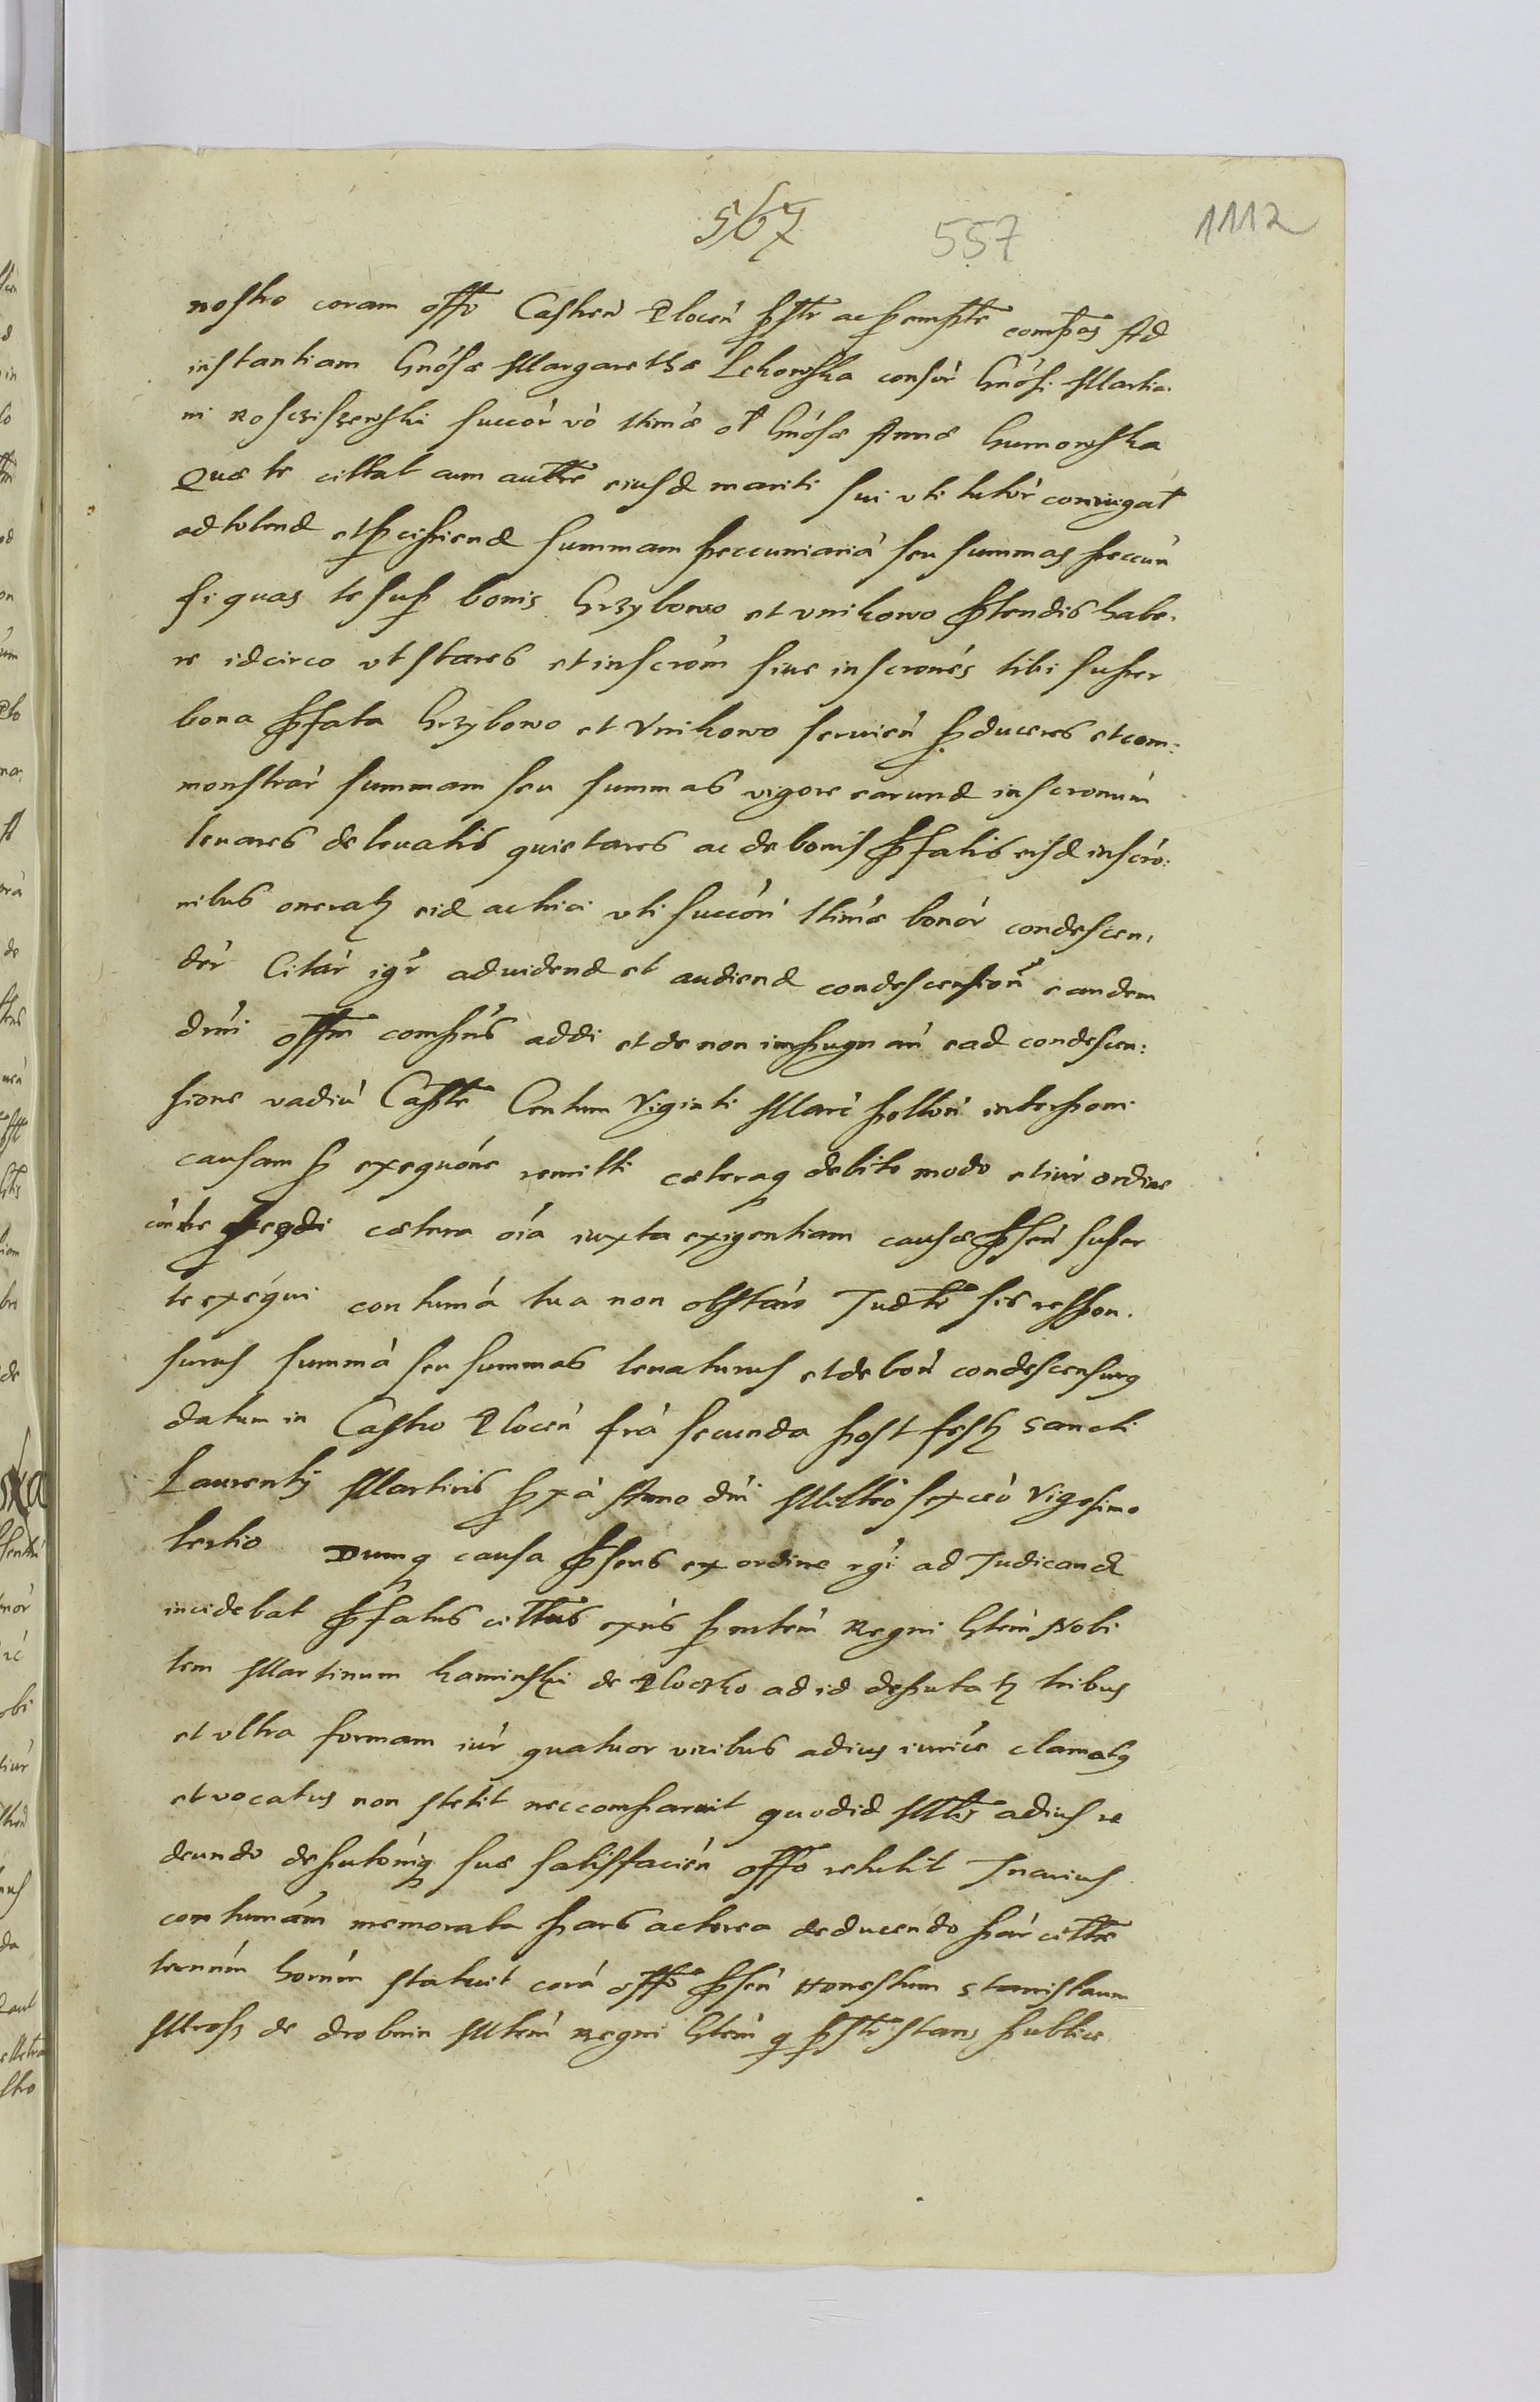 567 557 1112
nostro coram offo Castren Plocen pstr ac pempte compas Ad
instantiam Gnosae Margarethae Lekowska consor Gnosi Martia-
ni Rosciszewski succor vo ltimae ol Gnosae Annae Gumowska
Quae te cittat cum auttre eiusd mariti sui vti tutor coniugat
ad tolend et pcipiend summam peccuniariā seu summas peccun
si quas te sup bonis Grzybowo et Vnikowo ptendis habe-
re idcirco vt stares et inscrom siue inscrones tibi super
bona pfata Grzybowo et Vnikowo seruien pduceres et com:
monstrar summam seu summas vigore earund inscronum
leuares de leuatis quietares ac de bonis pfatis eisd inscro:
nibus onerat eid actrici vti succori ltimae bonor condescen-
der Citar igr ad vidend et audiend condescension eandem
dni offm compus addi et de non impugnan ead condescen:
sione vadiū Castre Centum Viginti Marc polton interponi
causam p exequone remitti caeteraq debito modo et iur ordine
contra te pcedi caetera oia iuxta exigentiam causae psen super
te exequi contumā tua non obstan Judtr sis respon-
surus summā seu summas leuaturus et de bon condescensurq
datum in Castro Plocen fra secunda post fest Sancti
Laurentij Martiris pxa Anno dni Milleo sexceo Vigesimo
tertio Dumq causa psens ex ordine rgi ad Judicand
incidebat pfatus cittus exns p mtem Regni Gtem Nobi
lem Martinum Kaminski de Plocko ad id deputat tribus
et vltra formam iur quatuor vicibus adius iurice clamatq
et vocatus non stetit nec comparuit quod id Mtris adius re
deundo deputoniq suae satisfacien offo retulit In cuius
contumam memorata pars actorea deducendo par cittae
ternum horum statuit corā offo psen Honestum Stanislaum
de Drobnin Mtem Regni Gtem q pstr stans publice